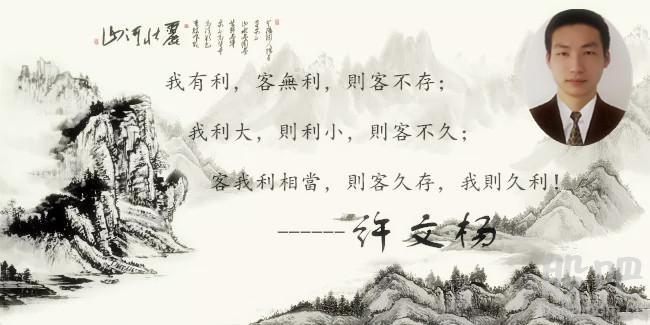 麗壮河山
我有利，客無利，則客不存；
我利大，則利小，則客不久；
客我利相當，則客久存，我則久利！
------许文杨
股吧